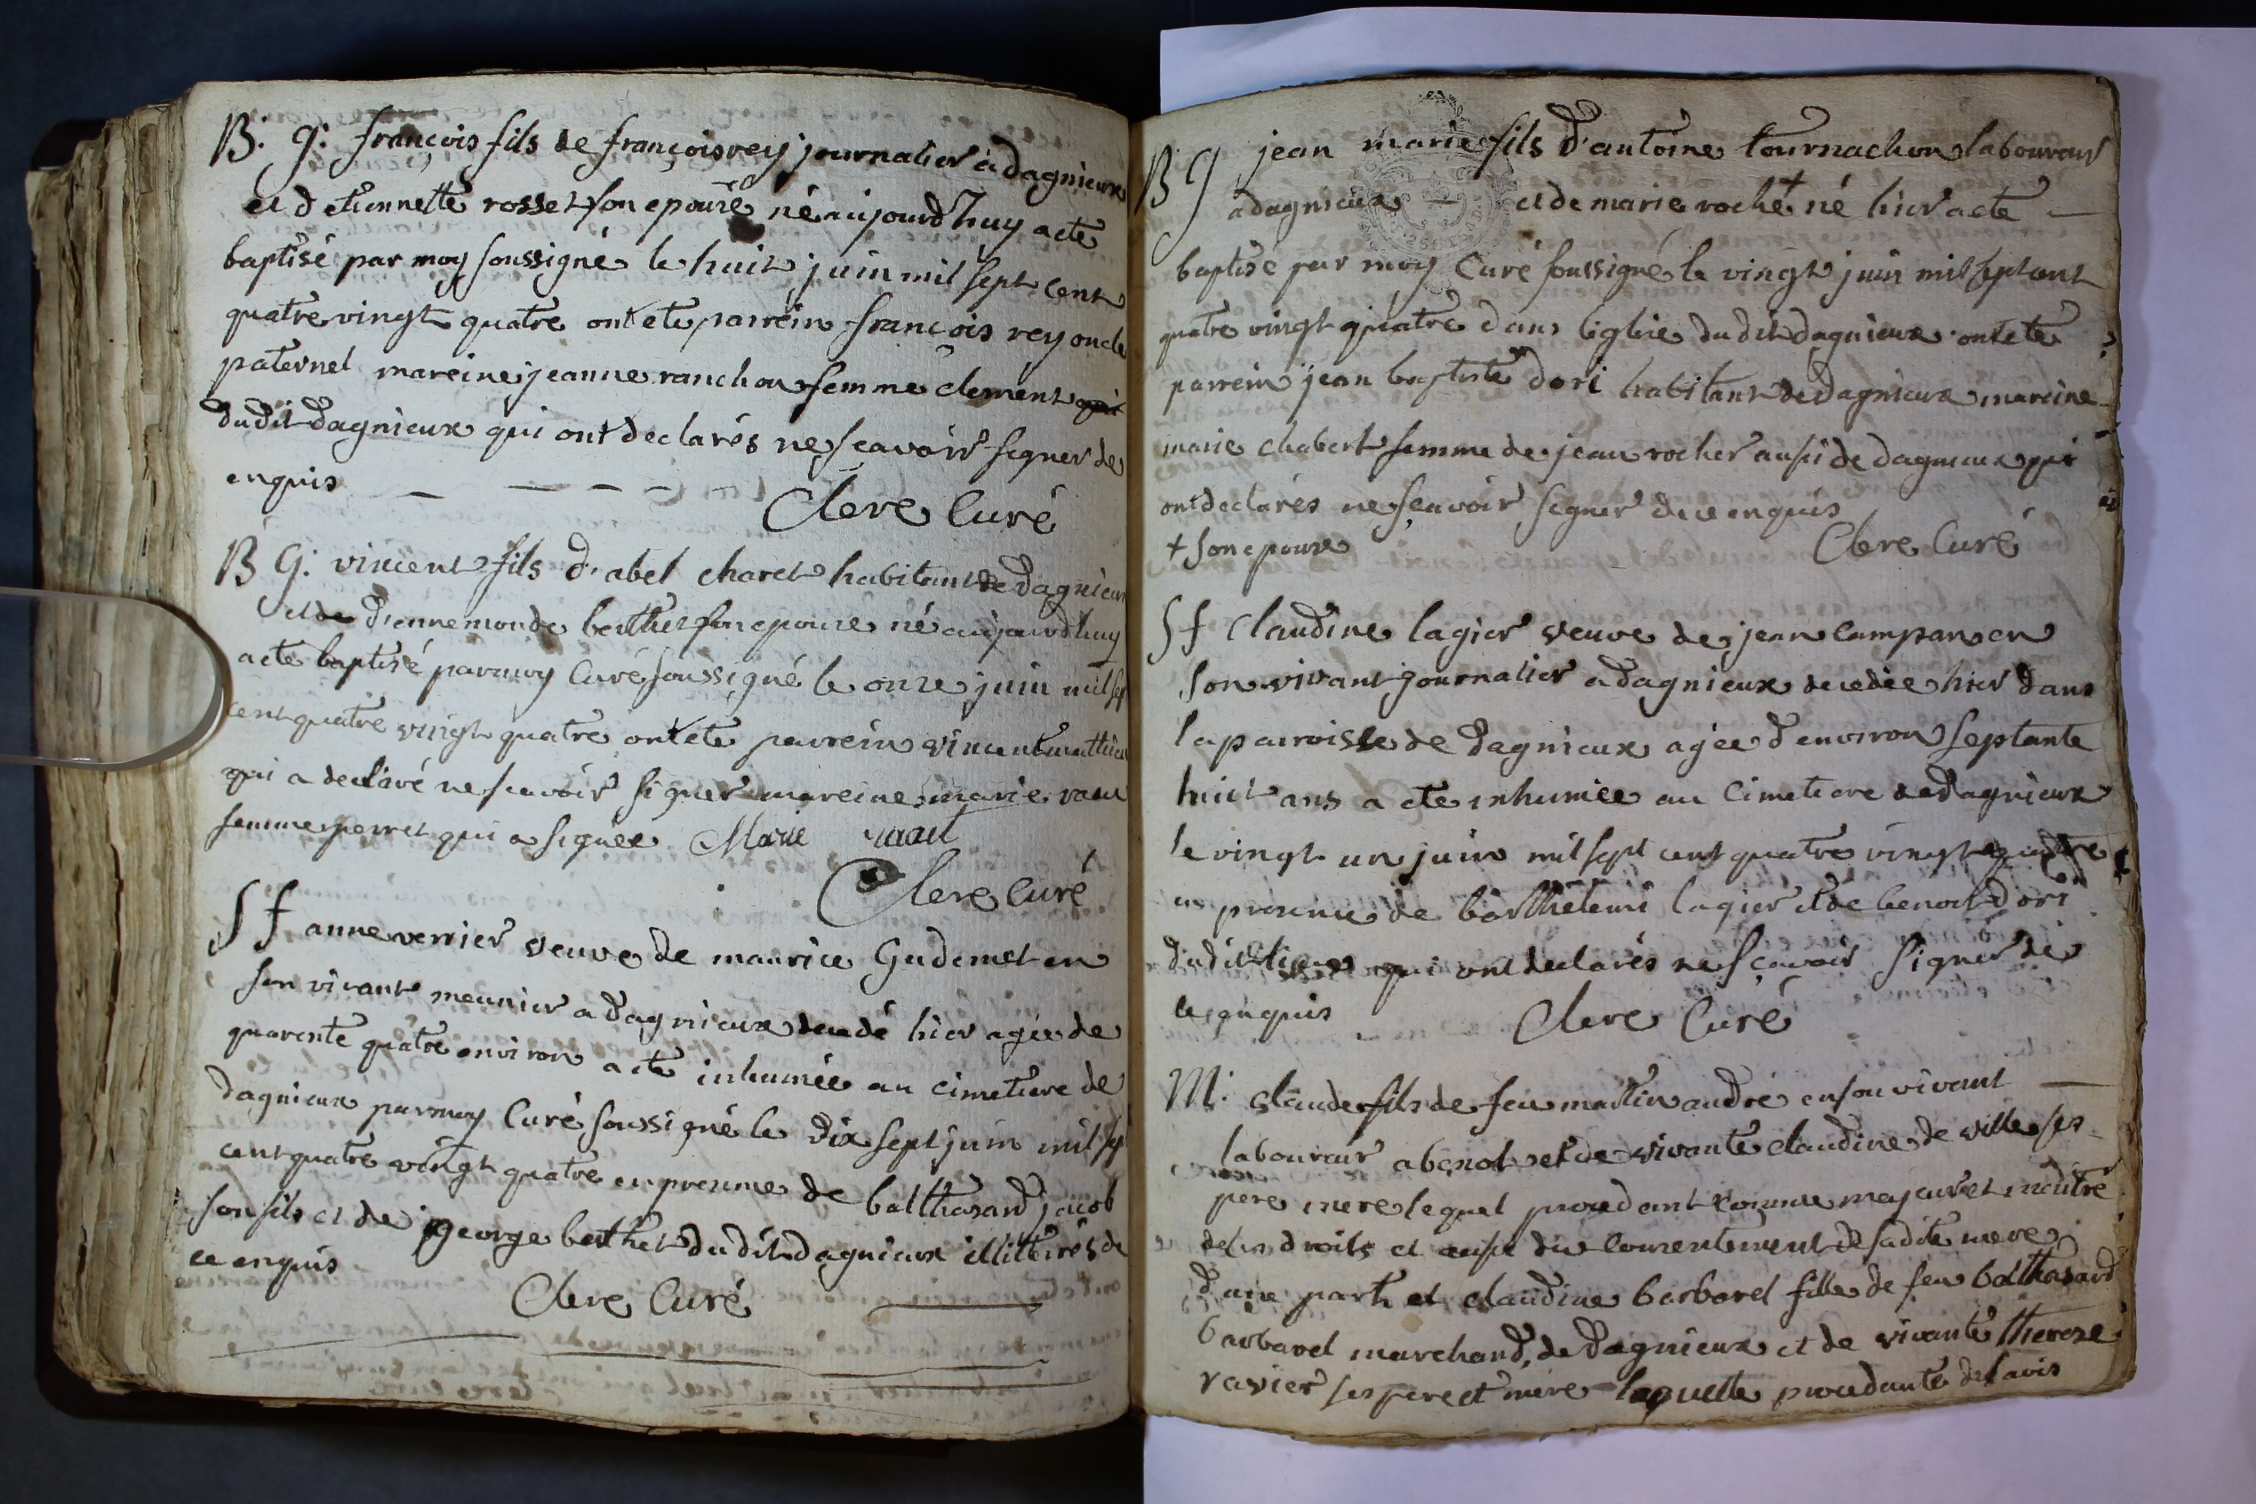 B. g: françois fils de françois rey journalier a dagnieux
et d etiennette rosset son epouse né aujourdhuy a ete
baptisé par moy soussigné le huit juin mil sept cent
quatre vingt quatre ont ete parrein françois rey oncle
paternel mareine jeanne ranchon femme clement
dudit dagnieux qui ont declarés ne scavoir signer de
enquis
Clere Curé
B G: vincent fils d'abel charet habitant de dagnieux
et de d'ennemonde berthet son epouse né aujourdhuy
a ete baptisé par moy Curé soussigné le onze juin mil sep
cent quatre vingt quatre ont ete parrein vincent mathieu
qui a declaré ne scavoir signer mareine marie
femme perret qui a signée Marie
Clere Curé
Sf anne verrier veuve de maurice Gudimet en
son vivant meunier a dagnieux decedé hier agée de
quarente quatre environ a ete inhumée au cimetiere de
dagnieux par moy Curé soussigné le dix sept juin mil sep
cent quatre vingt quatre en presence de balthasard jacob
son fils et de george berthet dudit dagnieux illitérés de
ce enquis
Clere Curé
B g jean marie fils d'antoine tournachon laboureur
a dagnieux et de marie roche + né hier a ete
baptisé par moy Curé soussigné le vingt juin mil sept cent
quatre vingt quatre dans leglise du dit dagnieux ont ete
parrein jean baptiste dori habitant de dagnieux mareine
marie chabert femme de jean rocher aussi de dagnieux qui
ont declarés ne scavoir signer de ce enquis
+ son epouse Clere Curé
Sf Claudine lagier veuve de jean campan en
son vivant journalier a dagnieux decedée hier dans
la parroisse de dagnieux agée d'environ septante
huit ans a ete inhumée au Cimetiere de dagnieux
le vingt un juin mil sept cent quatre vingt quatre
en presence de barthelemi lagier et de benoit dori
dudit lieu qui ont declarés ne scavoir signer de
ce enquis Clere Curé
M. claude fils de feu martin andré en son vivant
laboureur a et de vivante claudine de ville ses
pere mere lequel procedant comme majeur et maitre
de ses droits et aussi du consentement de sadite mere
d'une part et claudine barbarel fille de feu balthasard
barbarel marchand, de dagnieux et de vivante therese
ravier ses pere et mere laquelle procedante de lavis